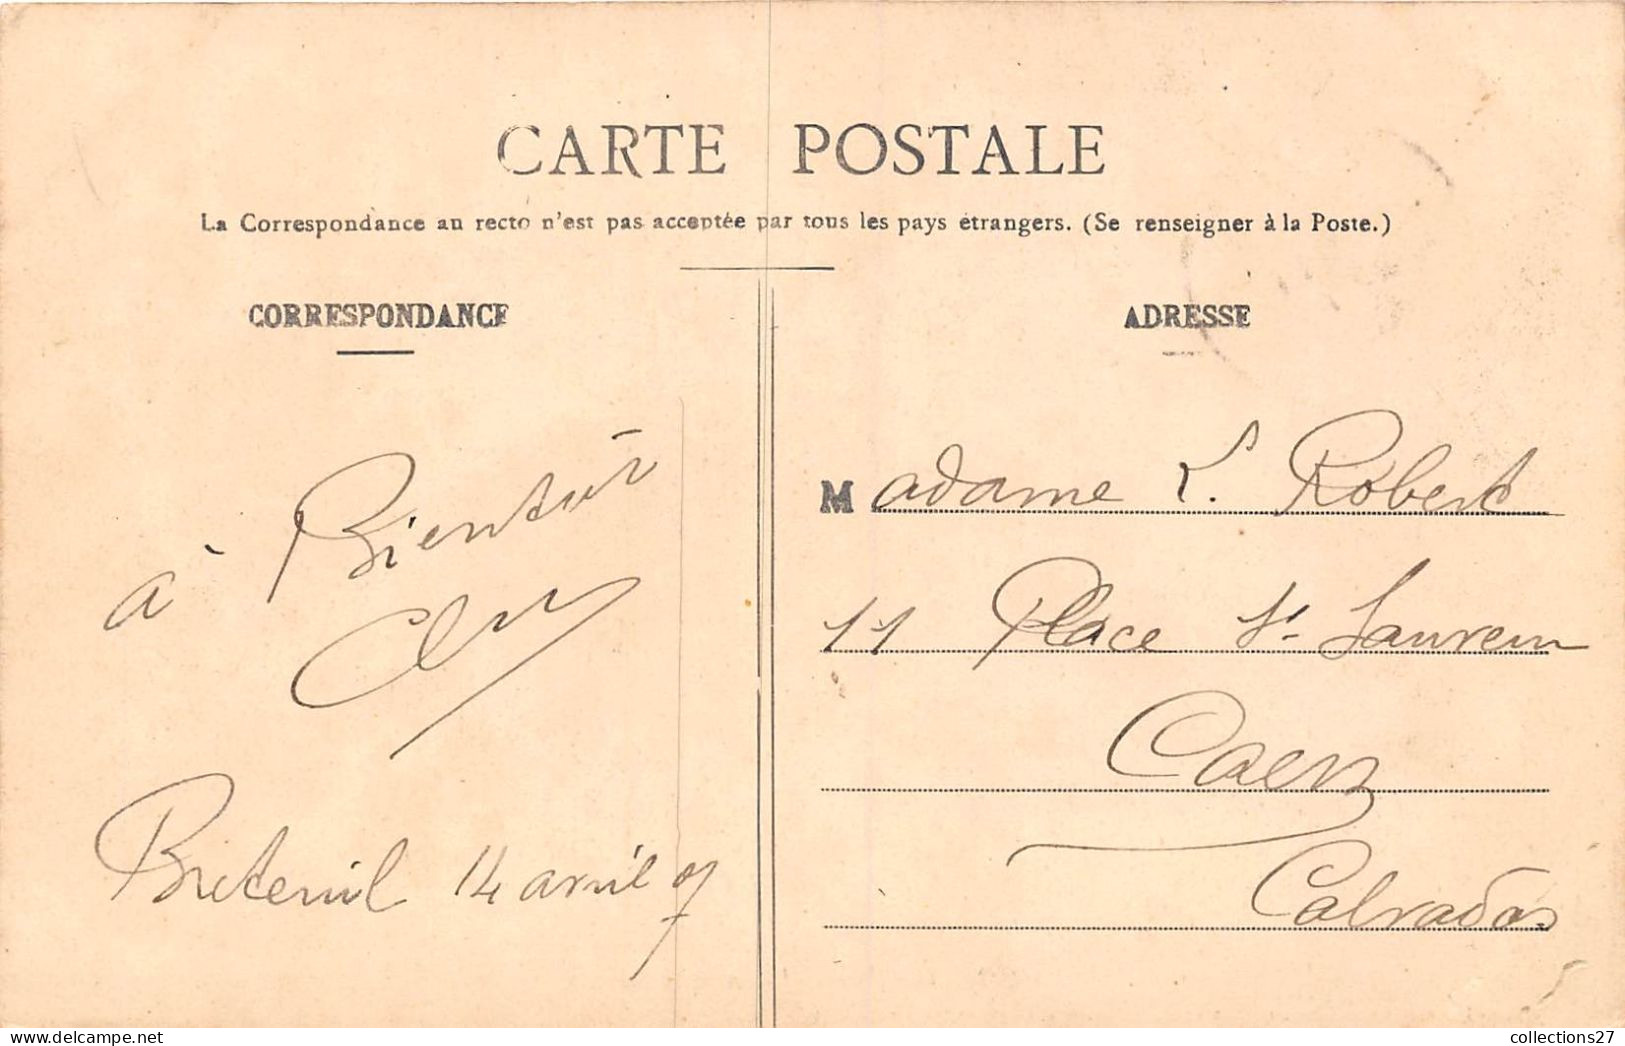 CARTE POSTALE
La Correspondance au recto n'est pas acceptée par tous les pays étrangers. (Se renseigner à la Poste.)
CORRESPONDANCE
à Bientôt
Breteuil 14 avril 07
ADRESSE
Madame L. Robert
11 Place St Laurent
Caen
Calvados
collections27